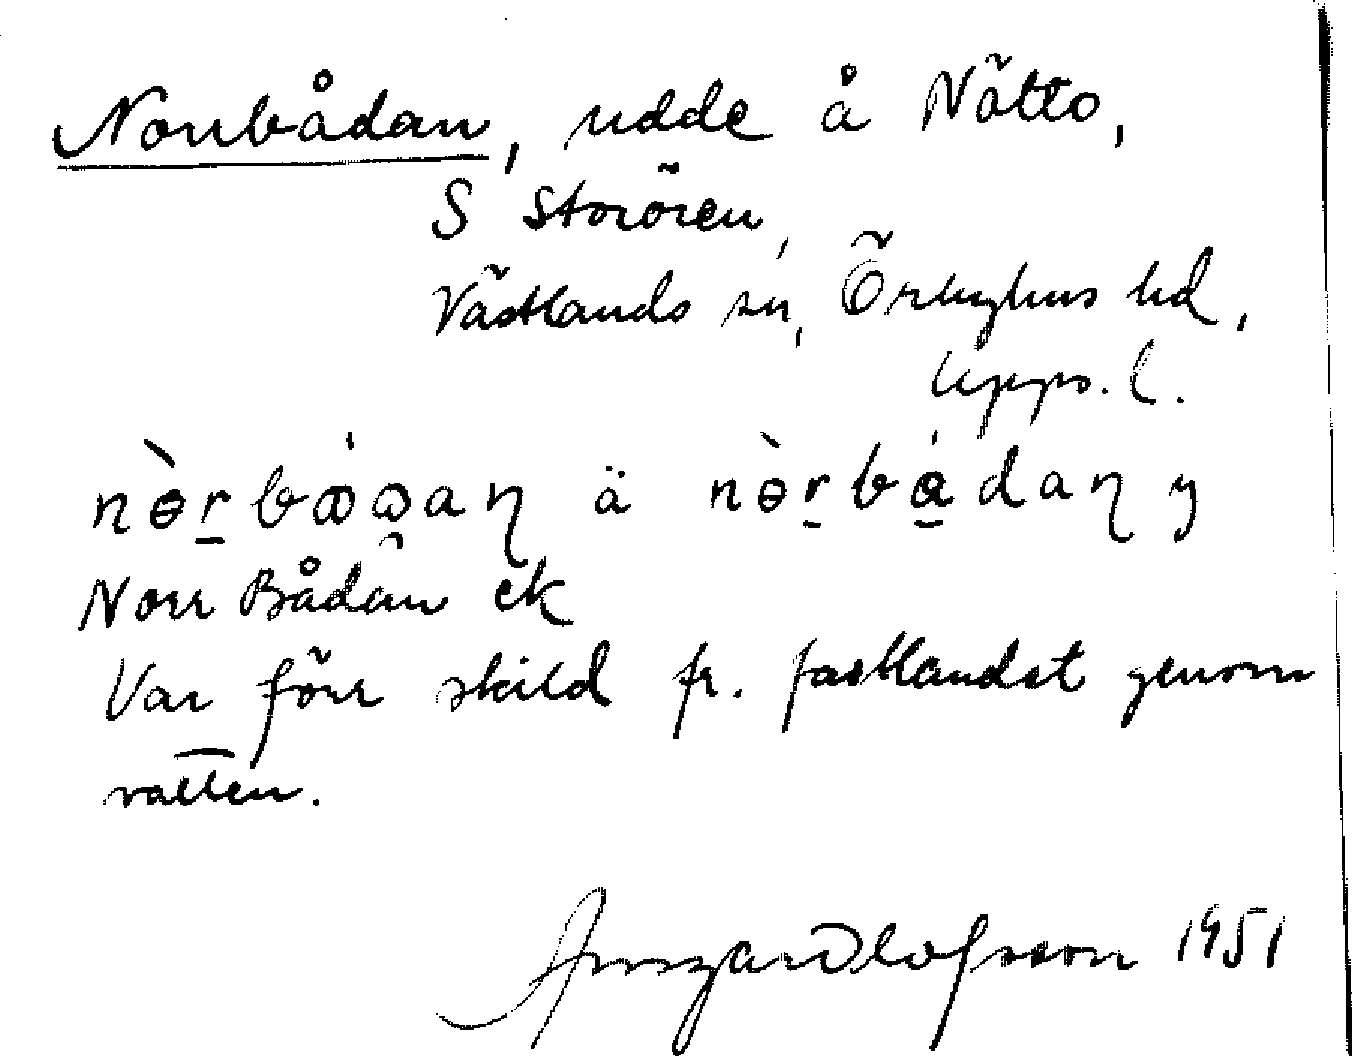 Norrbådan, udde å Nötto,
S Storören,
Västlands sn, Örbyhus hd,
Upps. l.
nèrbⱥ́ðaɳ ä nèrbádaɳ y
Norr Bådan ek
Var förr skild fr. fastlandet genom
vatten.
Olofsson 1951